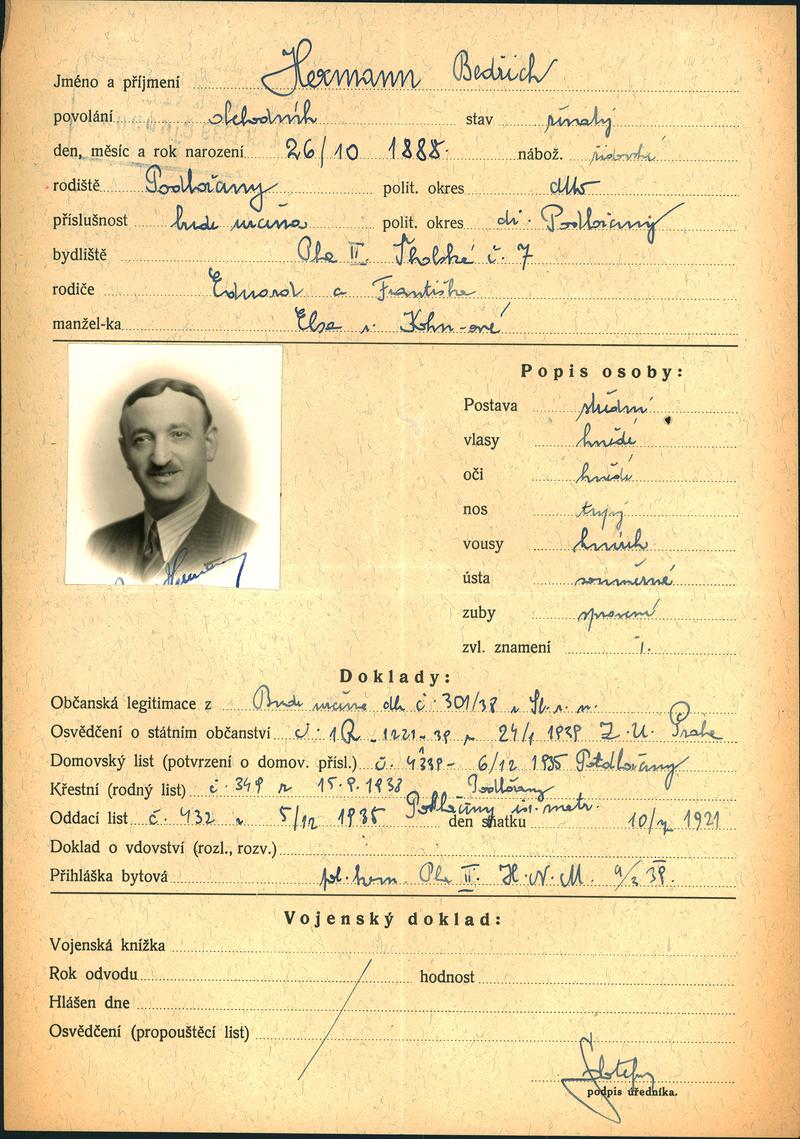 Jméno a příjmení Hermann Bedřich
povolání obchodník stav ženatý
den, měsíc a rok narození 26/10 1888. nábož. židovské
rodiště Podbořany polit. okres dtto
příslušnost bude určena polit. okres dř. Podbořany
bydliště Pha II. Školská č. 7
rodiče Eduard a Františka
manžel-ka Elsa r. Kohn-ová
Popis osoby:
Postava střední
vlasy hnědé
oči hnědé
nos tupý
vousy knírek
ústa souměrné
zuby spravené
zvl. znamení
Doklady:
Občanská legitimace z Bude určena dle č. 301/38 Sb. z. n.
Osvědčení o státním občanství č. 1R-1221-39 z 24/1 1939 Z. U. Praha
Domovský list (potvrzení o domov. přísl.) č. 4339- 6/12 1935 Podbořany
Křestní (rodný list) č. 349 z 15.9.1938 Podbořany
Oddací list č. 432 z 5/12 1935 Podbořany isr. matr. den sňatku 10/7 1921
Doklad o vdovství (rozl., rozv.)
Přihláška bytová pol. kom. Pha II. H. N. M. 9/2 39.
Vojenský doklad:
Vojenská knížka
Rok odvodu hodnost
Hlášen dne
Osvědčení (propouštěcí list)
podpis úředníka.